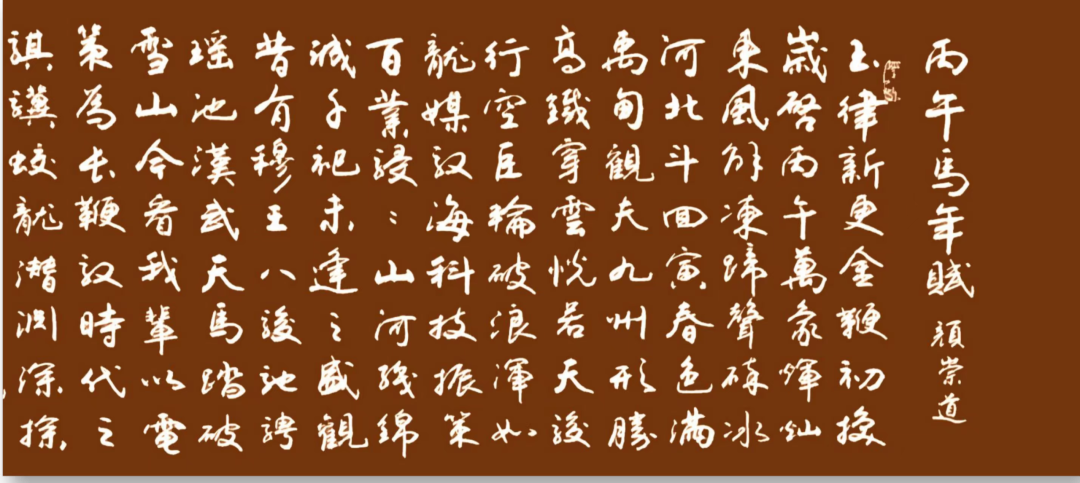 丙午馬年賦 顏崇道
玉律新更金鞭初換
歲啓丙午萬象煇灿
東風解凍蹄聲碎冰
河北斗回寅春色滿
禹甸觀夫九州形勝
高鐵穿雲恍若天駿
行空巨輪破浪渾如
龍媒馭海科技振策
百業駸〻山河錦
誠千祀未逢之盛觀
昔有穆王八駿馳騁
瑤池漢武天馬踏破
雪山今看我輩以電
策為長鞭馭時代之
騏驥蛟龍潛淵深探